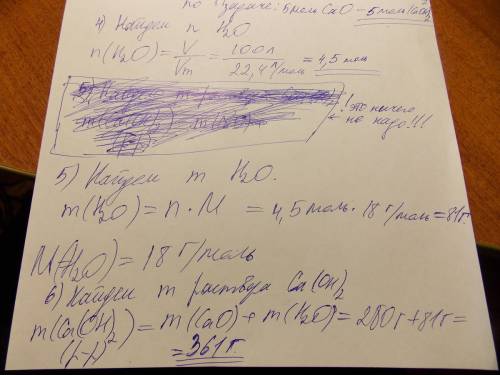 по задаче: 5 моль CaO – 5 моль Ca(OH)2
4) Найдем n H2O
n(H2O) = V/Vm = 100л/22,4 л/моль = 4,5 моль
! это ничего
не надо!!!
5) Найдем m H2O.
m(H2O) = n · M = 4,5 моль · 18 г/моль = 81 г.
M(H2O) = 18 г/моль
6) Найдем m раствора Ca(OH)2
m(Ca(OH)2) = m(CaO) + m(H2O) = 280 г + 81 г =
(р-р) = 361 г.